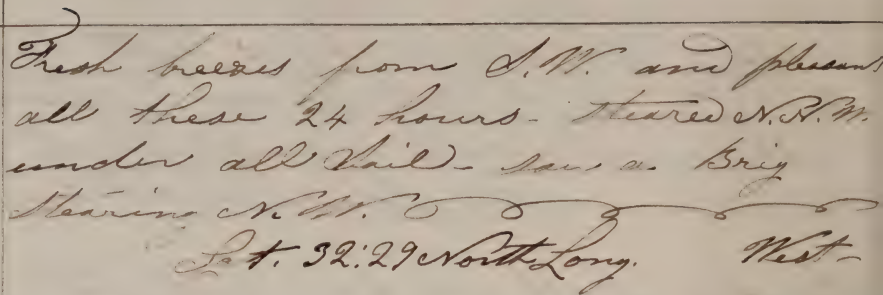 Fresh breezes from S.W. and pleasant
all these 24 hours - Steared N.N.W.
under all Sail - saw a Brig
Stearing N.W.
Lat. 32:29 North Long. West -